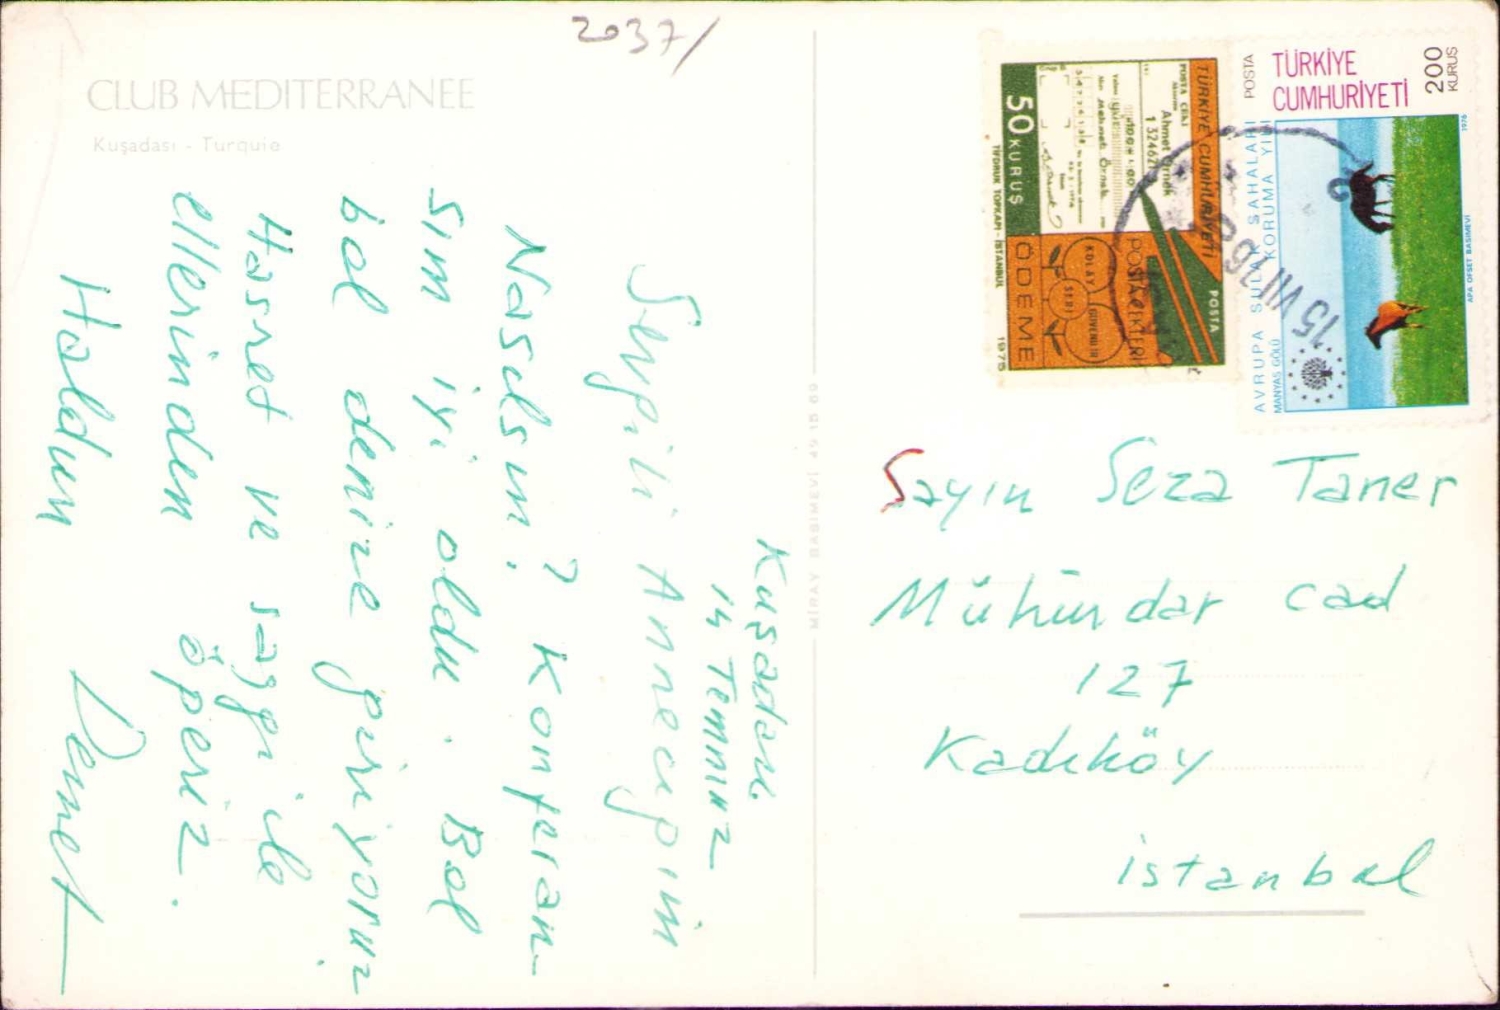 2037/
CLUB MEDITERRANEE
Kuşadası - Turquie
Kuşadası.
14 Temmuz
Sevgili Anneciğim
Nasılsın. ? Konferan-
sım iyi oldu. Bol
bol denize giriyoruz.
Hasret ve saygı ile
ellerinden öperiz.
Haldun Demet
MİRAY BASIMEVİ 49 15 69
TÜRKİYE CUMHURİYETİ
POSTA
50 KURUŞ
POSTA ÇEKİ
Ahmet Örnek
POSTA ÇEKLERİ
KOLAY
SERİ
GÜVENİLİR
ÖDEME
TİFDRUK TOPKAPI - İSTANBUL
1975
TÜRKİYE
CUMHURİYETİ
200
KURUŞ
POSTA
1976
AVRUPA SULAK SAHALARI
KORUMA YILI
MANYAS GÖLÜ
APA OFSET BASIMEVİ
15 VII 76
Sayın Seza Taner
Mühürdar cad
127
Kadıköy
istanbul